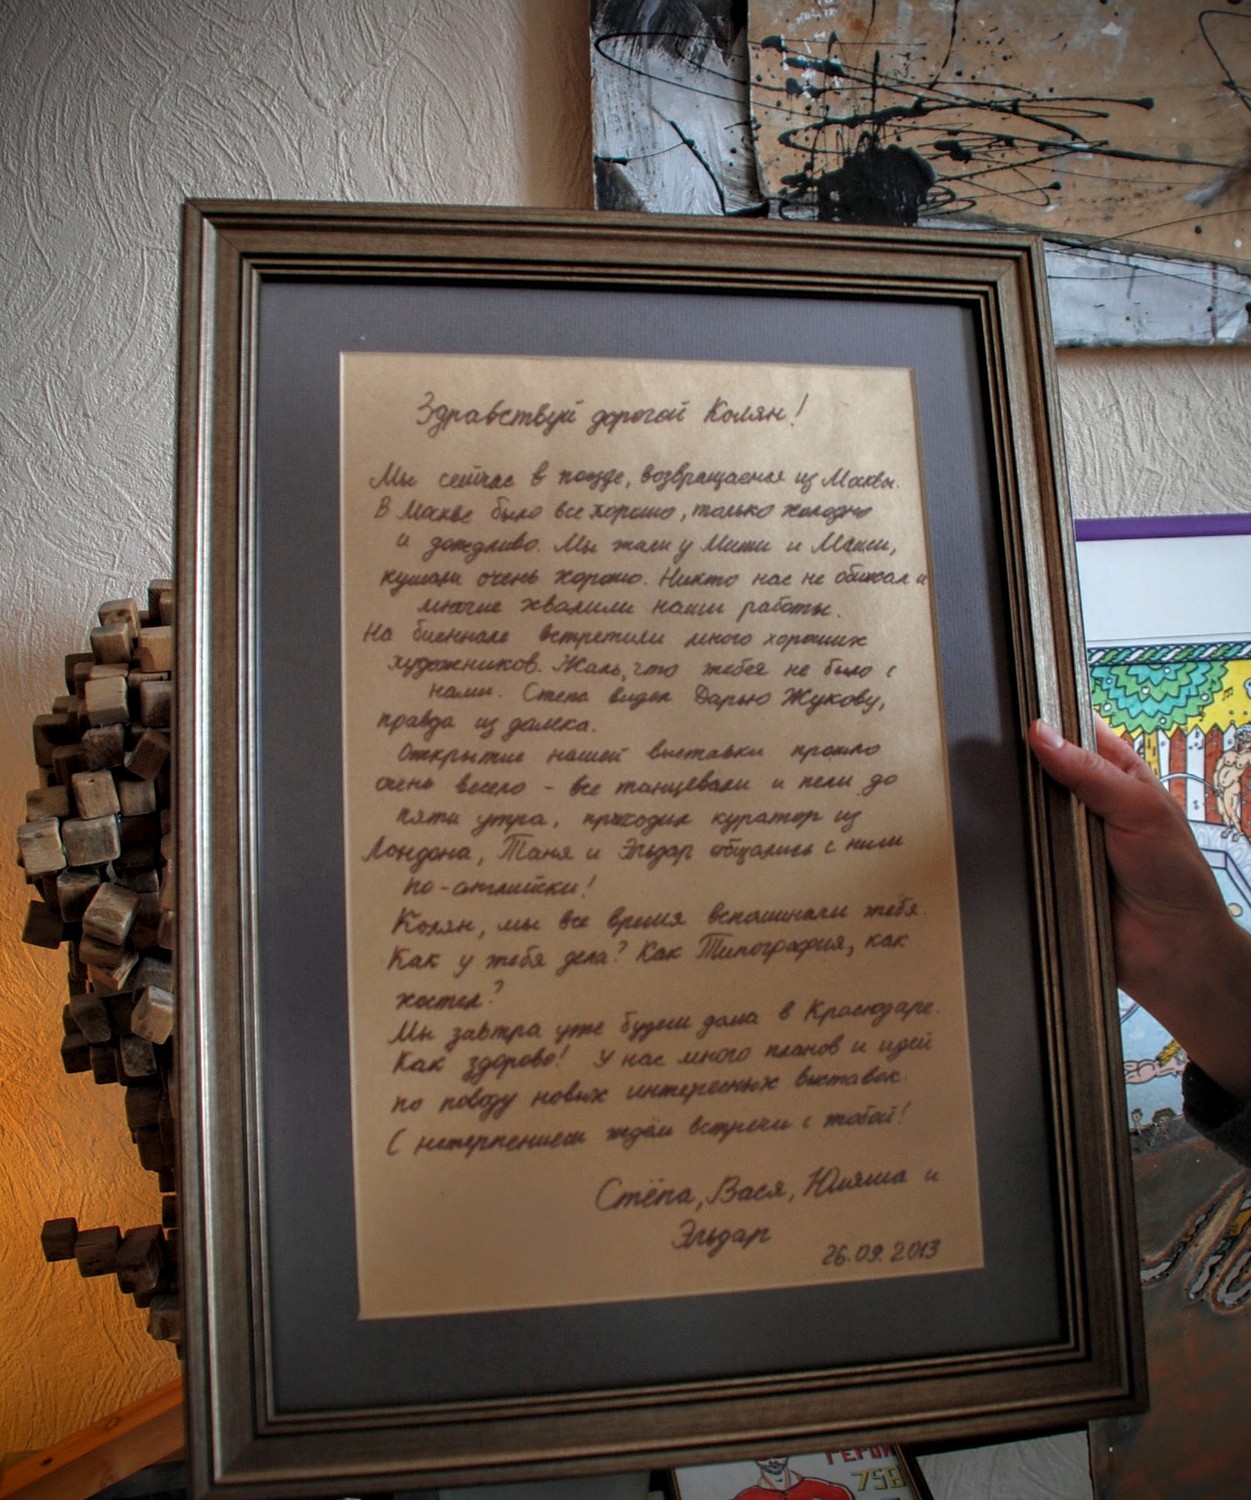 Здравствуй дорогой Колян!
Мы сейчас в поезде, возвращаемся из Москвы.
В Москве было все хорошо, только холодно
и дождливо. Мы жили у Миши и Маши,
кушали очень хорошо. Никто нас не обижал и
многие хвалили наши работы.
На биеннале встретили много хороших
художников. Жаль, что тебя не было с
нами. Степа видел Дарью Жукову,
правда из далека.
Открытие нашей выставки прошло
очень весело - все танцевали и пели до
пяти утра, приходил куратор из
Лондона, Таня и Эльдар общались с ним
по-английски!
Колян, мы все время вспоминали тебя.
Как у тебя дела? Как Типография, как
хостел?
Мы завтра уже будем дома в Краснодаре.
Как здорово! У нас много планов и идей
по поводу новых интересных выставок.
С нетерпением ждём встречи с тобой!
Стёпа, Вася, и
Эльдар
26.09.2013
ГЕРОИ
758